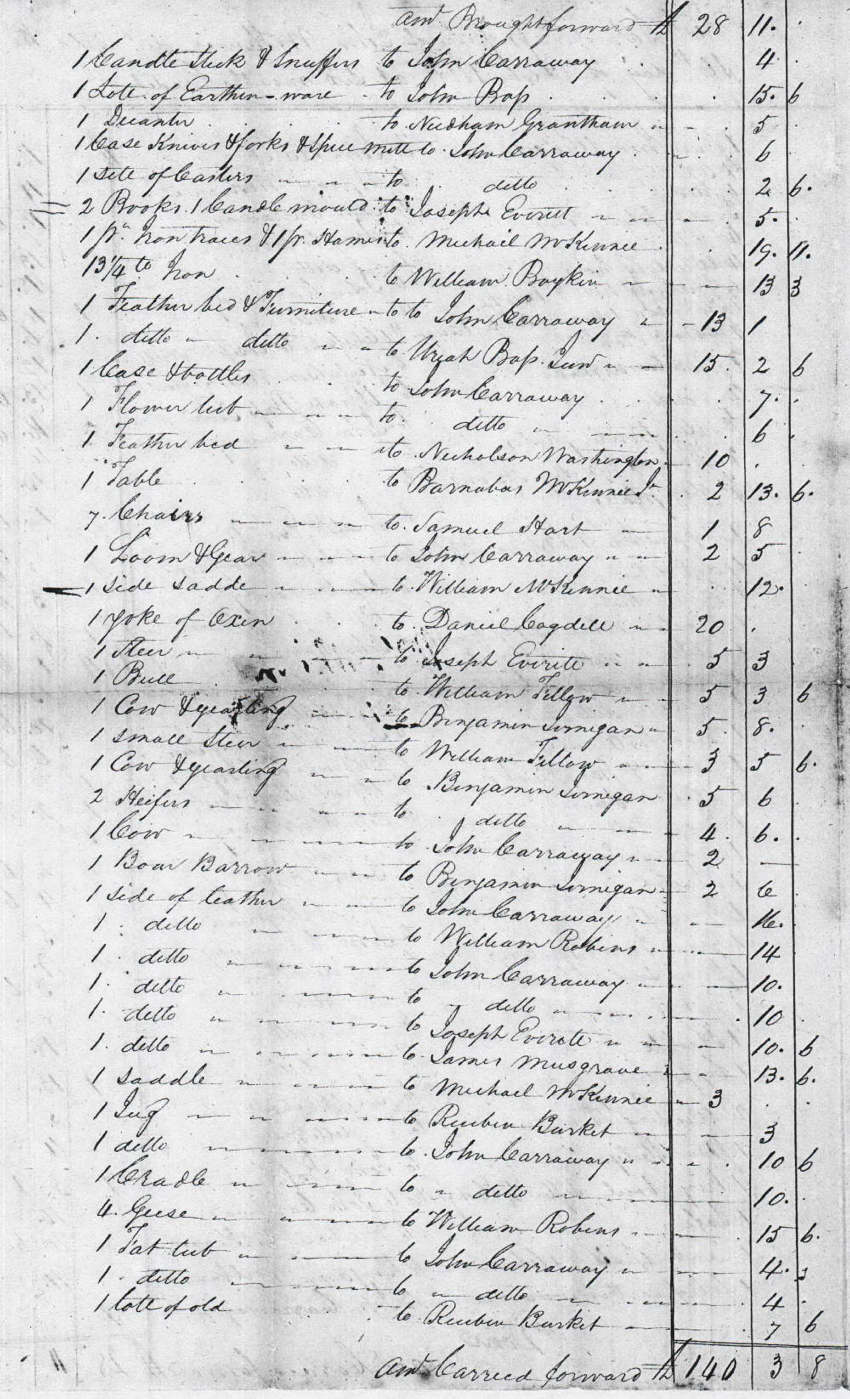 amt Brought forward £ 28 11.
1 Candle Stick & Snuffers to John Carraway 4
1 Lote of Earthen-ware to John Bass 15. 6
1 Decanter to Needham Grantham 5
1 Case Knives & forks & Spice mill to John Carraway 6
1 Sete of Casters to ditto 2 6.
2 Books. 1 Candle mould to Joseph Everitt 5.
1 pr. Iron traces & 1 pr. Hames to Michail McKinnie 19. 11.
13 1/4 lb Iron to William Boykin 13 3
1 Feather bed & Furniture to John Carraway 13 1
1. ditto ditto to Uriah Bass Junr 15. 2 6
1 Case & bottles to John Carraway 7.
1 Flower tub to ditto 6
1 Feather bed to Nicholson Washington 10
1 Table to Barnabas McKinnie Jr 2 13. 6.
7 Chairs to Samuel Hart 1 8
1 Loom & Gear to John Carraway 2 5
1 Side Sadde to William McKinnie 12.
1 yoke of Oxen to Daniel Cogdell 20
1 Steer to Joseph Everitt 5 3
1 Bull to William Fellow 5 3 6
1 Cow & yearling to Binjamin Jirnigan 5. 8.
1 Small Steer to William Fellow 3 5 6.
1 Cow & yearling to Binjamin Jirnigan 5 6
2 Heifers to ditto 4. 6.
1 Cow to John Carraway 2 —
1 Boar Barrow to Binjamin Jirnigan 2 6
1 Side of leather to John Carraway 16.
1. ditto to William Robins 14
1. ditto to John Carraway 10.
1. ditto to ditto 10
1. ditto to Joseph Everett 10. 6
1. ditto to James Musgrave 13. 6.
1 Saddle to Michael McKinnie 3
1 Jug to Reuben Burket 3
1 ditto to John Carraway 10 6
1 Cradle to ditto 10.
4. Geese to William Robins 15 6.
1 Fat tub to John Carraway 4. 3
1. ditto to ditto 4.
1 lote of old to Reuben Burket 7 6
amt Carried forward £ 140 3 8